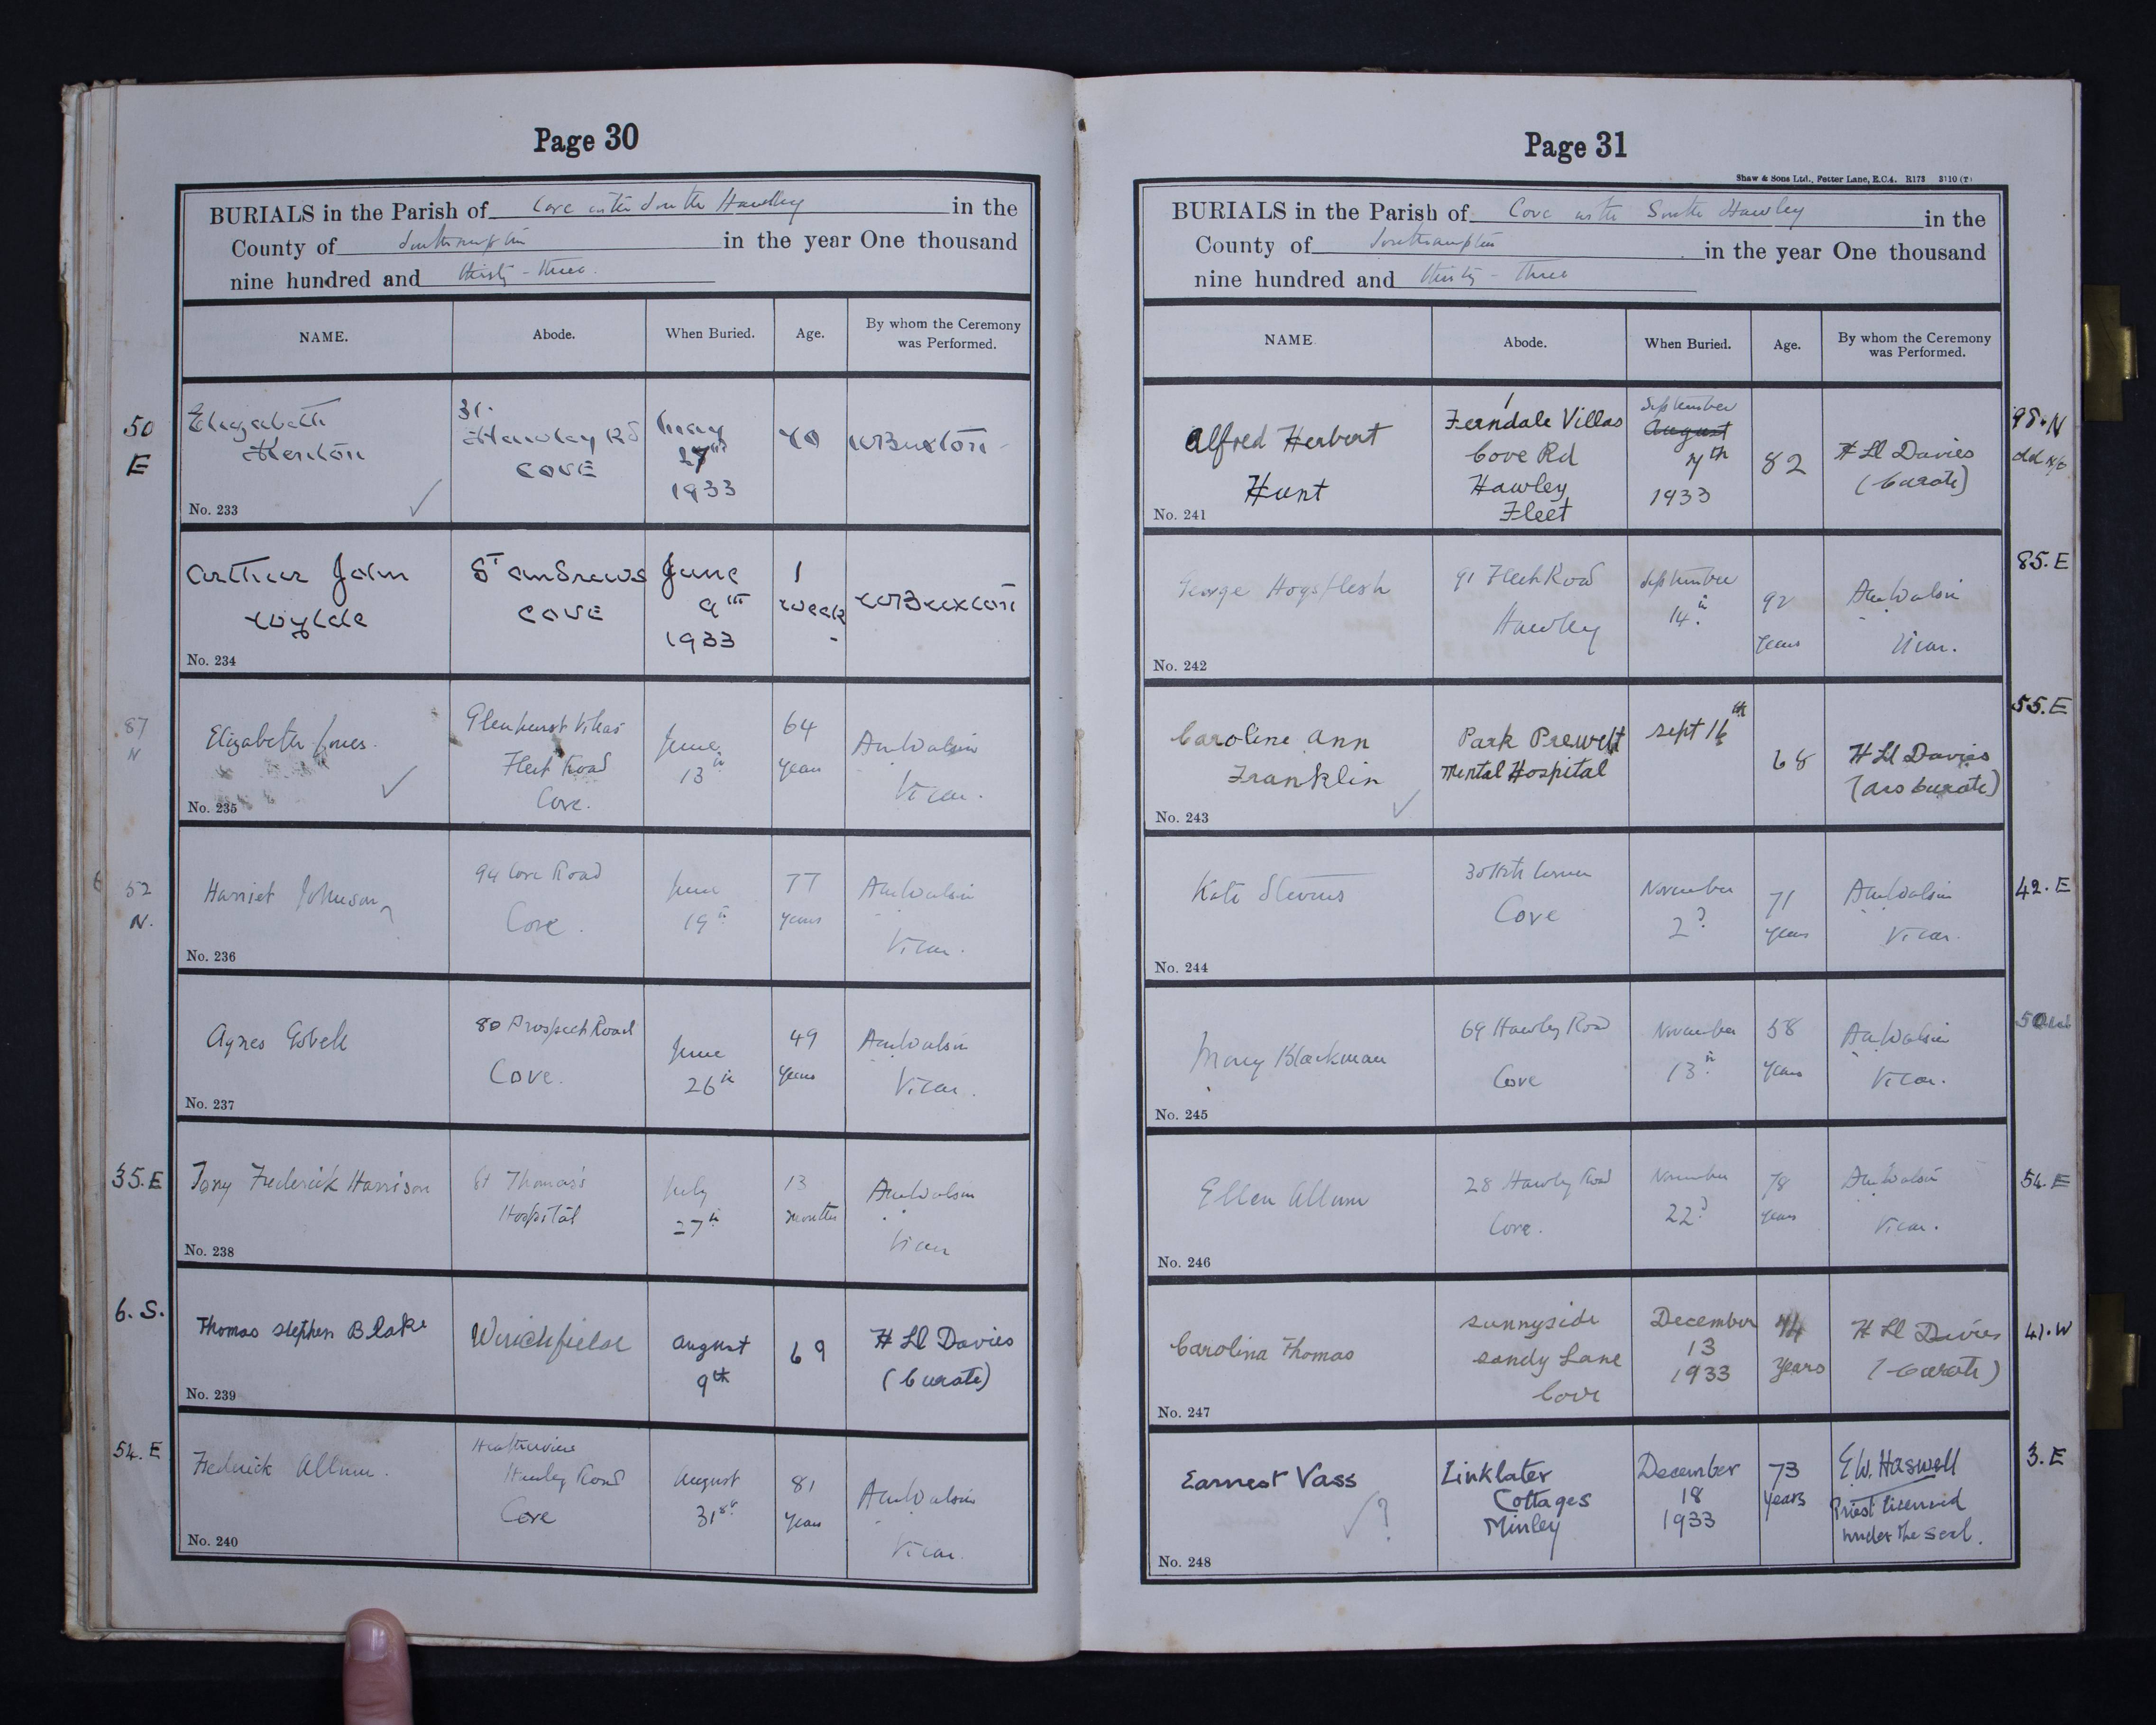 Page 30
BURIALS in the Parish of Cove with South Hawley in the
County of Southampton in the year One thousand
nine hundred and thirty-three.
NAME. Abode. When Buried. Age. By whom the Ceremony was Performed.
50
E
Elizabeth
31.
Hawley Rd
COVE
May
27th
1933
W Buxton
No. 233
Arthur John
Wylde
St Andrews
COVE
June
9th
1933
1
week
W Buxton
No. 234
87
N
Elizabeth Jones.
Glenhurst Villas
Fleet Road
Cove.
June
13th
64
years
Vicar.
No. 235
52
N.
Harriet Johnson
94 Cove Road
Cove.
June
19th
77
years
Vicar.
No. 236
Agnes
80 Prospect Road
Cove.
June
26th
49
years
Vicar.
No. 237
35.E
Tony Frederick Harrison
St Thomas's
Hospital
July
27th
13
months
Vicar
No. 238
6. S.
Thomas Stephen Blake
Winchfield
August
9th
69
H Ll Davies
(Curate)
No. 239
54. E
Frederick Allum.
Hawley Road
Cove
August
31st
81
years
Vicar.
No. 240
Page 31
Shaw & Sons Ltd., Fetter Lane, E.C.4. R173 3110 (T)
BURIALS in the Parish of Cove with South Hawley in the
County of Southampton in the year One thousand
nine hundred and thirty-three
NAME Abode. When Buried. Age. By whom the Ceremony was Performed.
Alfred Herbert
Hunt
1
Ferndale Villas
Cove Rd
Hawley
Fleet
September
August
7th
1933
82
H Ll Davies
(Curate)
98.N
No. 241
George Hogsflesh
91 Fleet Road
Hawley
September
14th
92
years
Vicar.
85. E
No. 242
Caroline Ann
Franklin
Park Prewett
Mental Hospital
Sept 16th
68
H Ll Davies
(Ass Curate)
55. E
No. 243
Kate Stevens
Cove
November
2d
71
years
Vicar.
42. E
No. 244
Mary Blackman
69 Hawley Road
Cove
November
13th
58
years
Vicar.
No. 245
Ellen Allum
28 Hawley Road
Cove.
November
22d
78
years
Vicar.
54. E
No. 246
Carolina Thomas
Sunnyside
Sandy Lane
Cove
December
13
1933
years
H Ll Davies
(Curate)
41.W
No. 247
Earnest Vass
?
Linklater
Cottages
Minley
December
18
1933
73
years
E W. Haswell
Priest licensed
under the seal.
3. E
No. 248